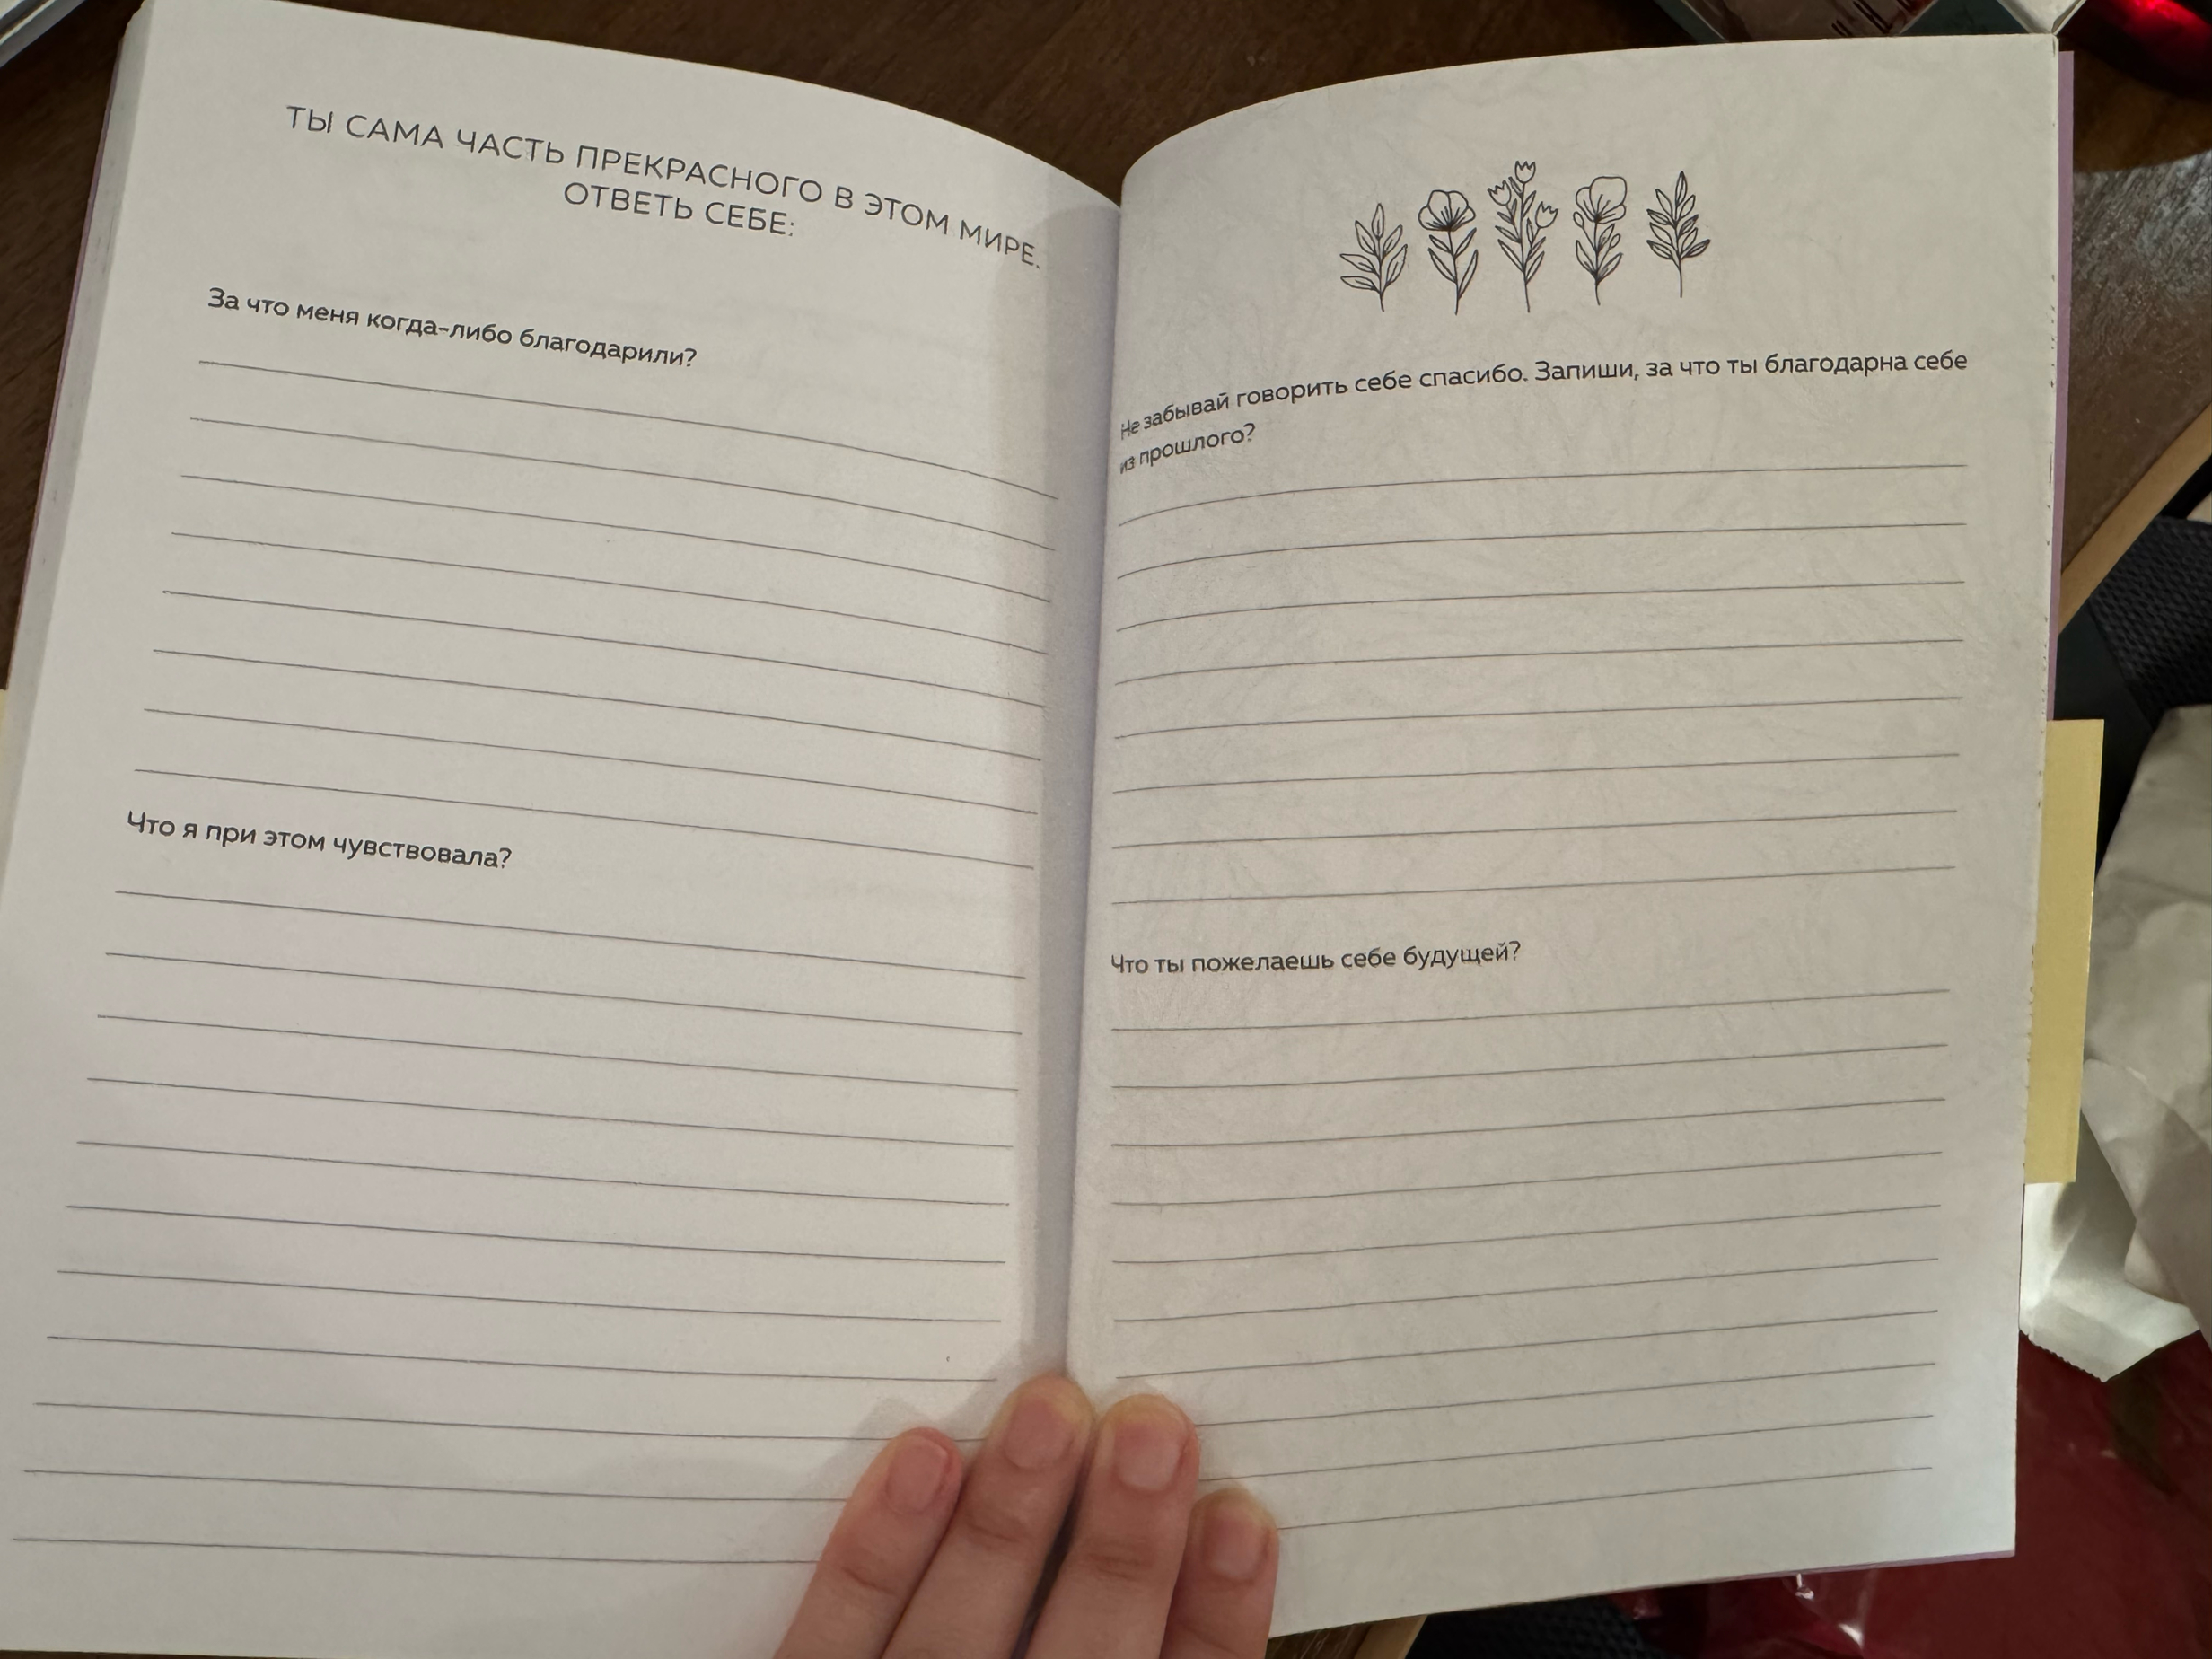 ТЫ САМА ЧАСТЬ ПРЕКРАСНОГО В ЭТОМ МИРЕ.
ОТВЕТЬ СЕБЕ:
За что меня когда-либо благодарили?
Что я при этом чувствовала?
Не забывай говорить себе спасибо. Запиши, за что ты благодарна себе
из прошлого?
Что ты пожелаешь себе будущей?